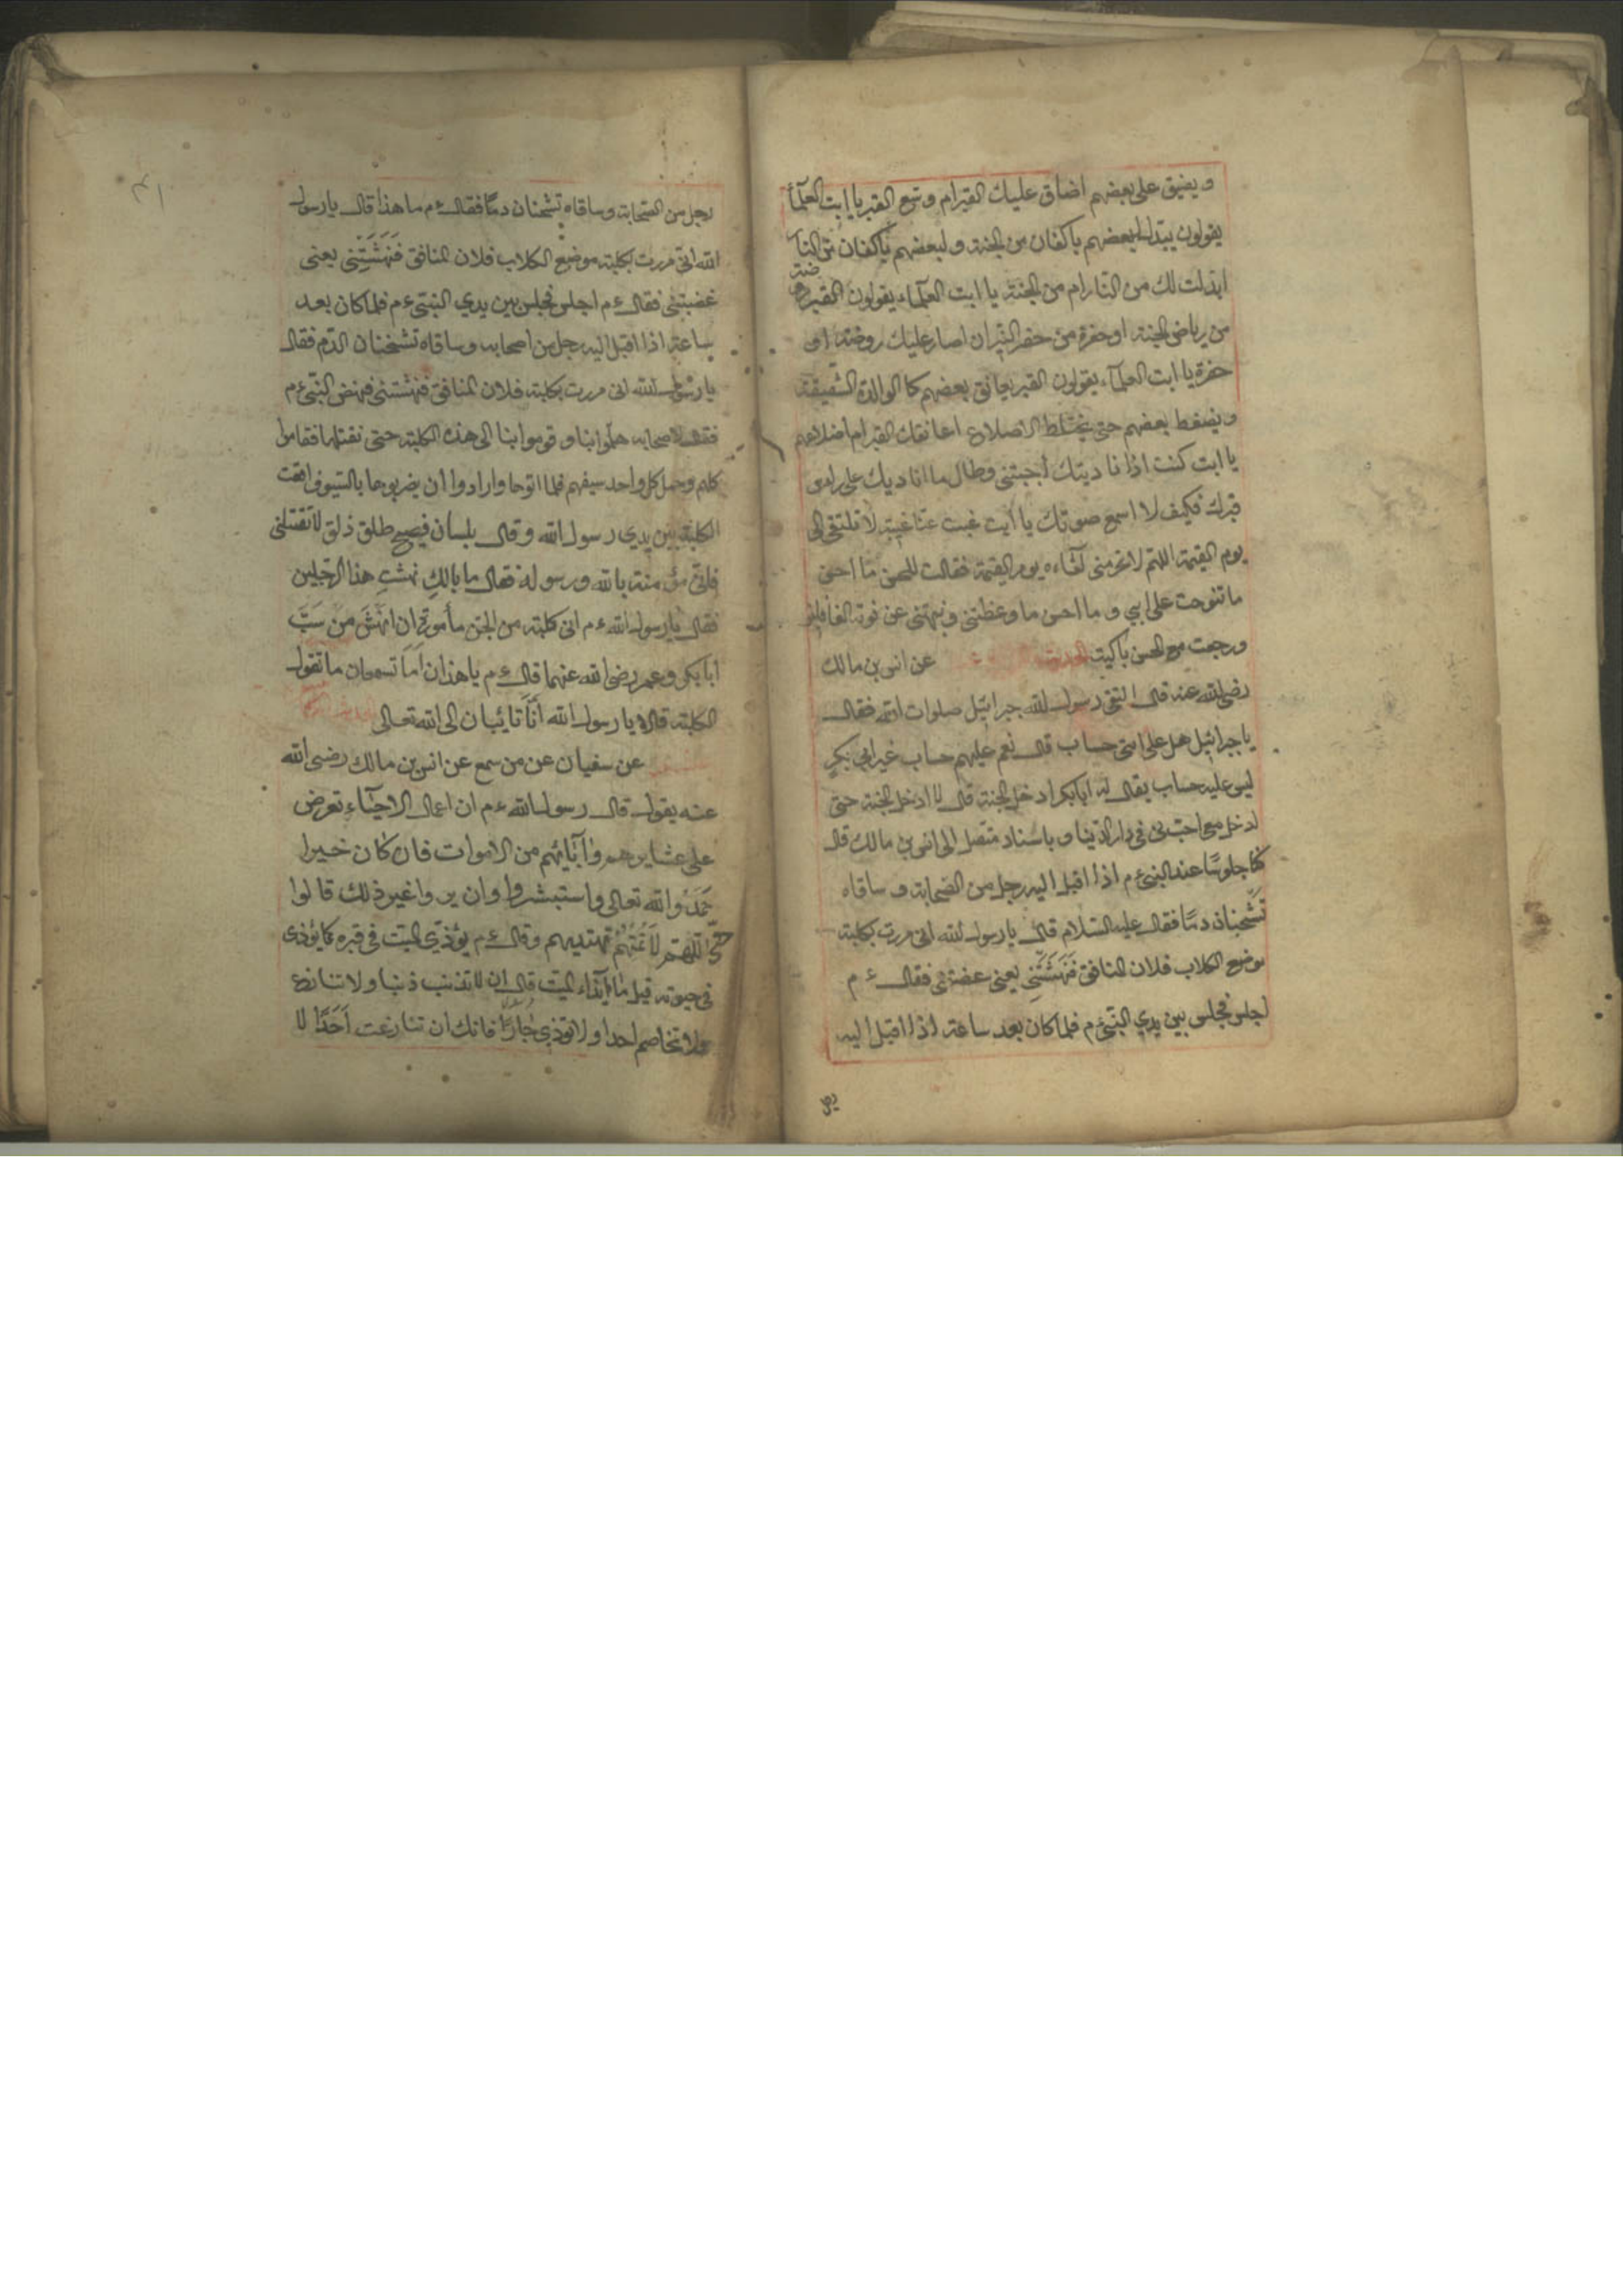 ويضيق على بعضهم اضاق عليك القبر ام وسع القبر يا ابت العلمآء
يقولون يبدل لبعضهم باكفان من الجنة ولبعضهم باكفان من النا
ابدلت لك من النار ام من الجنة يا ابت العلمآء يقولون القبر روضة
من رياض الجنة او حفرة من حفر النيران اصار عليك روضة ام
حفرة يا ابت العلمآء يقولون القبر يعانق بعضهم كالوالدة الشفيقة
ويضغط بعضهم حتى يختلط الاضلاع اعانقك القبر ام اضلاعهم
يا ابت كنت اذا ناديتك اجبتنى وطال ما اناديك على راس
قبرك فكيف لا اسمع صوتك يا ابت غبت عنا غيبة لا نلتقى الى
يوم القيمة اللهم لا تحرمنى لقاءه يوم القيمة فقالت للحسن ما احسن
ما تنوحت على ابى وما احسن ما وعظتنى ونبهتنى عن نومة الغافلين
ورجعت مع الحسن باكية عن انس بن مالك
رضى الله عنه قال التقى رسول الله جبرائيل صلوات الله فقال
يا جبرائيل هل على امتى حساب قال نعم عليهم حساب غير ابى بكر
ليس عليه حساب يقال له ابابكر ادخل الجنة قال لا ادخل الجنة حتى
ادخل معى احبنى فى دار الدنيا وباسناد متصل الى انس بن مالك قال
كنا جلوسًا عند النبى ءم اذا اقبل اليه رجل من الصحابة وساقاه
تشخبان دمًا فقال عليه السلام قال يا رسول الله انى مررت بكلبة
موضع الكلاب فلان المنافق فَنَهَشَتْنِى يعنى عضتنى فقال ءم
اجلس فجلس بين يدى النبى ءم فلما كان بعد ساعة اذا اقبل اليه
رجل من الصحابة وساقاه تشخبان دمًا فقال ءم ما هذا قال يا رسول
الله انى مررت بكلبة موضع الكلاب فلان المنافق فَنَهَشَتْنِى يعنى
غضبتنى فقال ءم اجلس فجلس بين يدى النبى ءم فلما كان بعد
ساعة اذا اقبل اليه رجل من اصحابه وساقاه تشخبان الدم فقال
يا رسول الله انى مررت بكلبة فلان المنافق فنهشتنى فنهض النبى ءم
فقال لاصحابه هلموا بنا وقوموا بنا الى هذه الكلبة حتى نقتلها فقاموا
كلهم وحمل كل واحد سيفهم فلما اتوها وارادوا ان يضربوها بالسيوف
الكلبة بين يدى رسول الله وقال بلسان فصيح طلق ذلق لا تقتلنى
فانى مؤمنة بالله ورسوله فقال ما بالكِ نهشتِ هذا الرجلين
فقال يا رسول الله ءم انى كلبة من الجن مأمورة ان انهش من سَبَّ
ابابكر وعمر رضى الله عنهما قال ءم يا هذان اما تسمعان ما تقول
الكلبة قالا يا رسول الله انا تائبان الى الله تعالى
عن سفيان عن من سمع عن انس بن مالك رضى الله
عنه يقول قال رسول الله ءم ان اعمال الاحياء تعرض
على عشايرهم وابآئهم من الاموات فان كان خيرا
حَمَدُوا الله تعالى واستبشروا وان يروا غير ذلك قالوا
اللهم لا تمتهم حتى تهديهم وقال ءم يؤذى الميت فى قبره كما يؤذى
فى حيوته قيل ما ايذاء الميت قال ان لا تذنب ذنبا ولا تنازع
ولا تخاصم احدا ولا توذى جارًا فانك ان تنازعت اَحَدًا لا